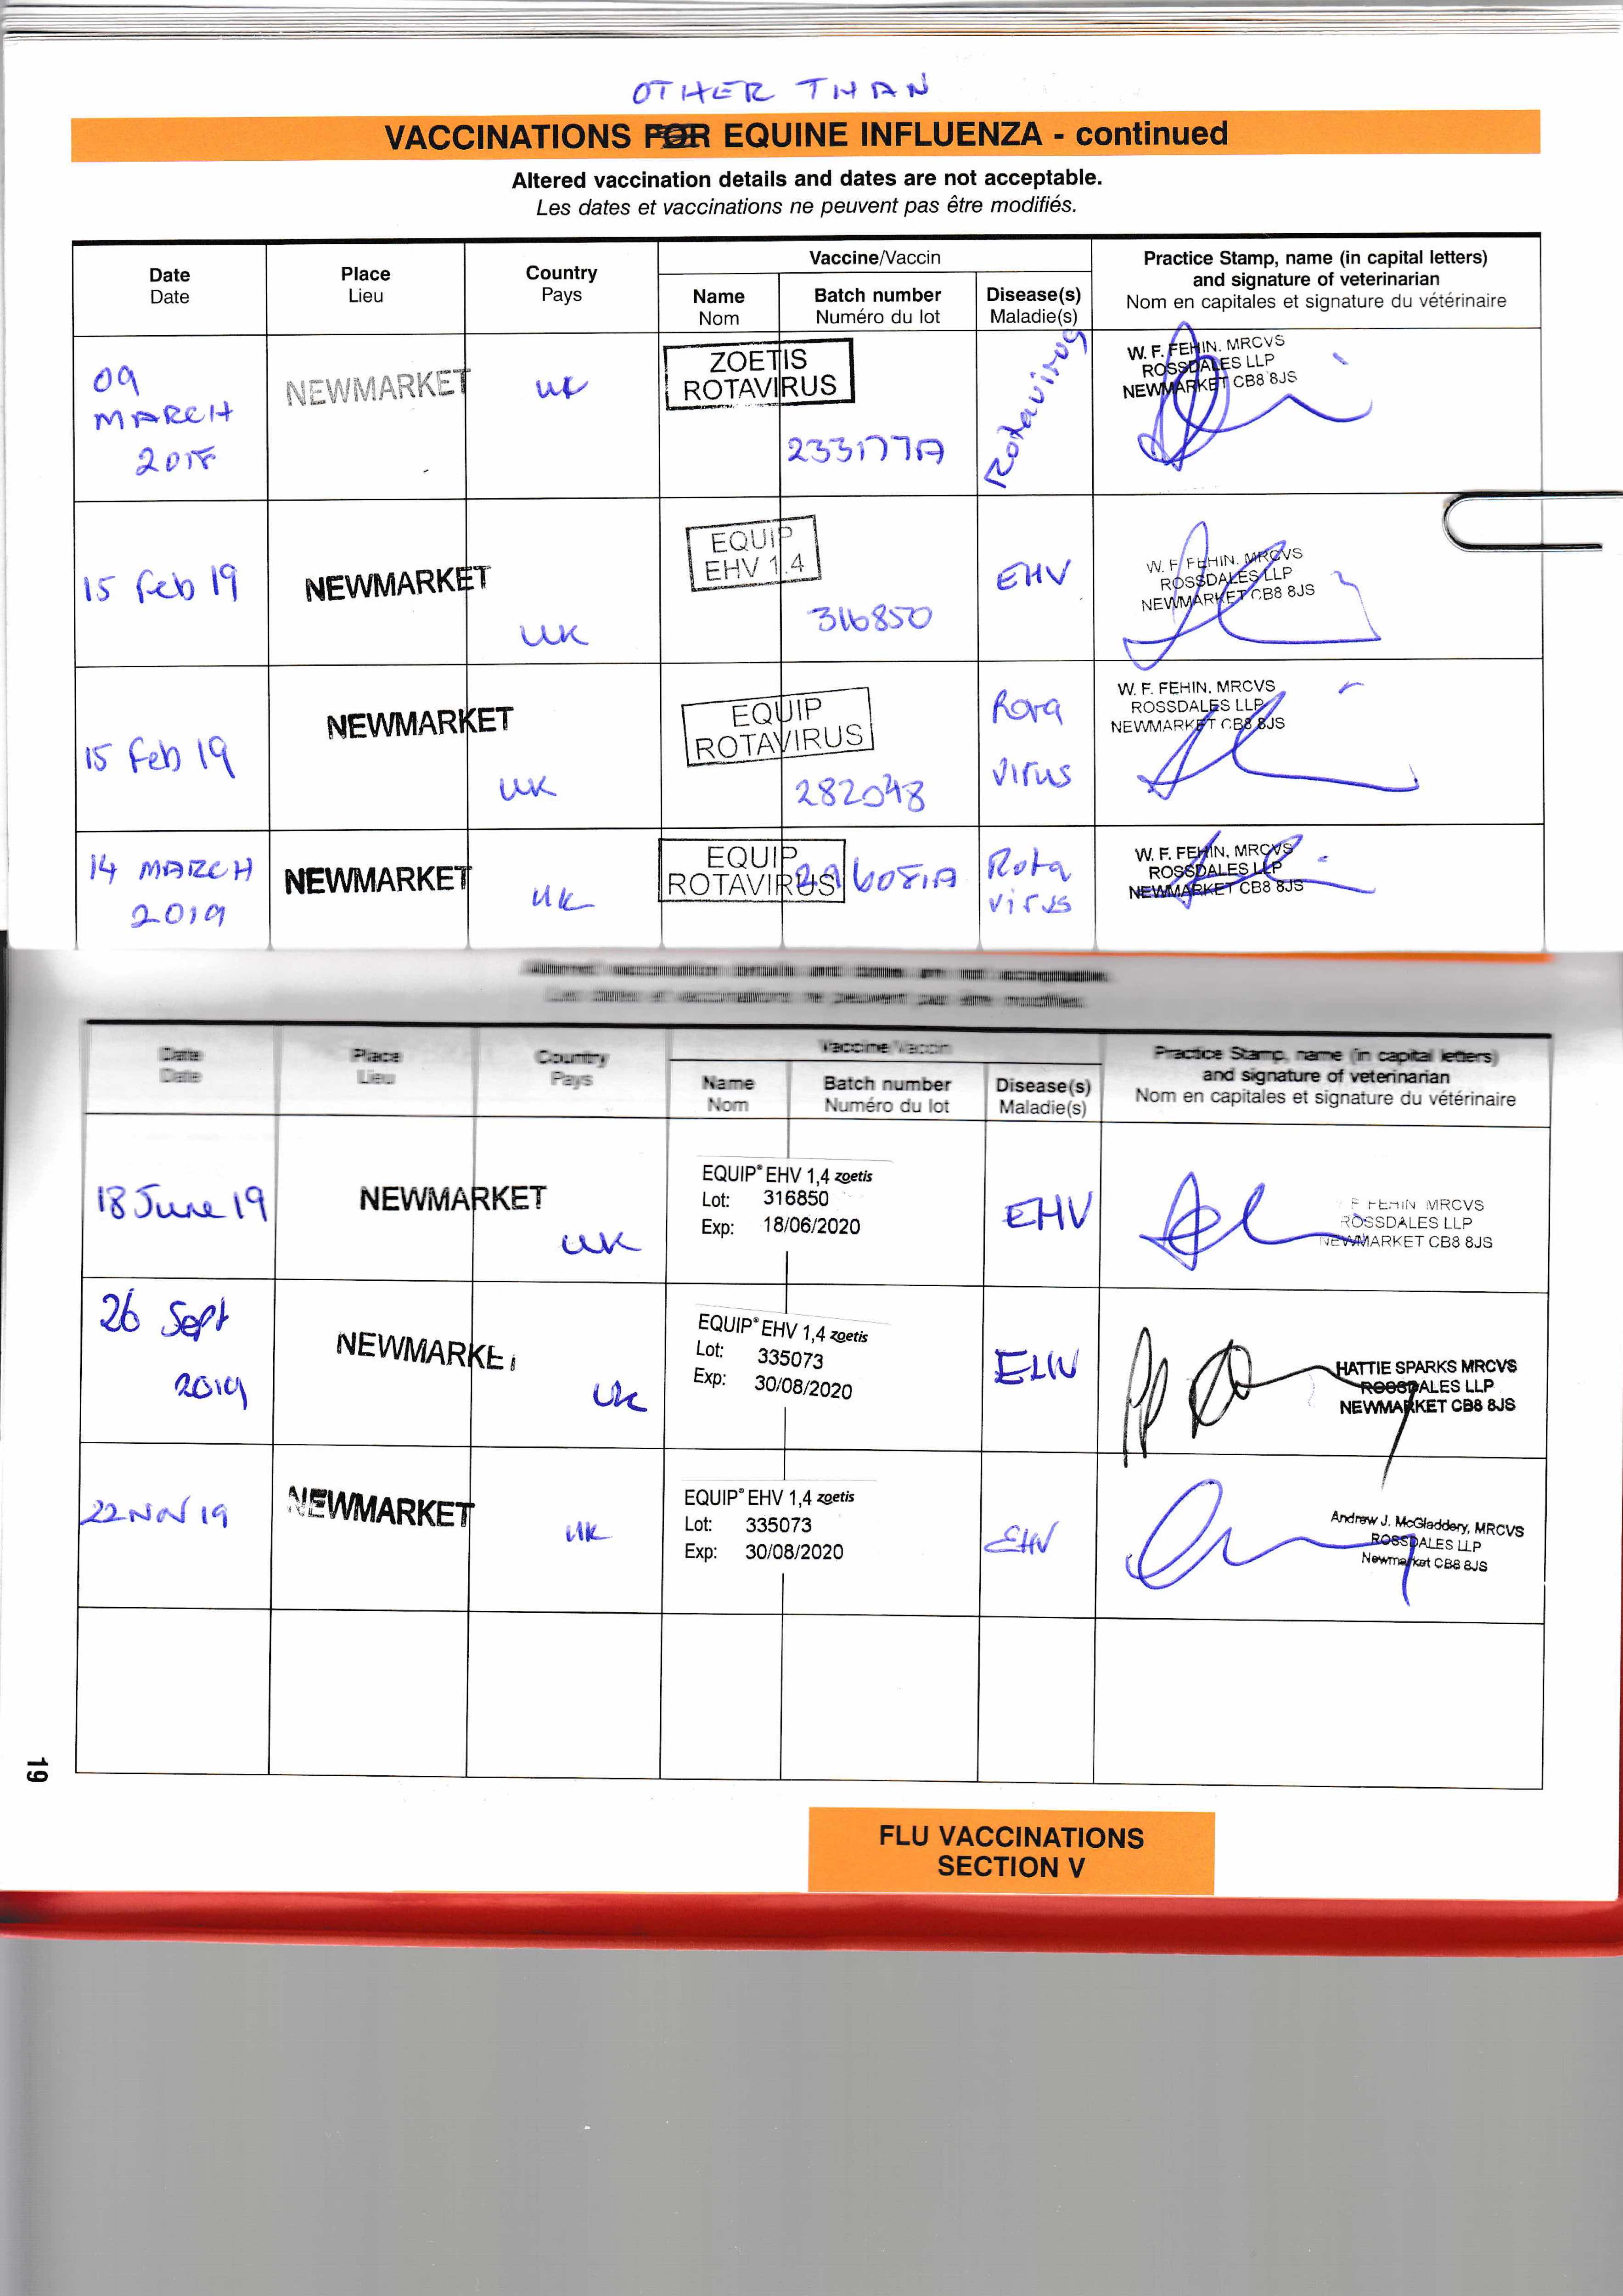 OTHER THAN
VACCINATIONS FOR EQUINE INFLUENZA - continued
Altered vaccination details and dates are not acceptable.
Les dates et vaccinations ne peuvent pas être modifiés.
Date Place Country Vaccine/Vaccin Practice Stamp, name (in capital letters)
Date Lieu Pays Name Batch number Disease(s) and signature of veterinarian
Nom Numéro du lot Maladie(s) Nom en capitales et signature du vétérinaire
09 MARCH 2018
NEWMARKET
UK
ZOETIS
ROTAVIRUS
233177A
Rotavirus
W. F. FEHIN. MRCVS
ROSSDALES LLP
NEWMARKET CB8 8JS
15 Feb 19
NEWMARKET
UK
EQUIP
EHV 1.4
316850
EHV
W. F. FEHIN. MRCVS
ROSSDALES LLP
NEWMARKET CB8 8JS
15 Feb 19
NEWMARKET
UK
EQUIP
ROTAVIRUS
282048
Rota
virus
W. F. FEHIN. MRCVS
ROSSDALES LLP
NEWMARKET CB8 8JS
14 MARCH
2019
NEWMARKET
UK
EQUIP
ROTAVIRUS
Rota
virus
W. F. FEHIN, MRCVS
ROSSDALES LLP
NEWMARKET CB8 8JS
Altered vaccination details and dates are not acceptable.
Les dates et vaccinations ne peuvent pas être modifiés.
Date Place Country Vaccine/Vaccin Practice Stamp, name (in capital letters)
Date Lieu Pays Name Batch number Disease(s) and signature of veterinarian
Nom Numéro du lot Maladie(s) Nom en capitales et signature du vétérinaire
18 June 19
NEWMARKET
UK
EQUIP® EHV 1,4 zoetis
Lot: 316850
Exp: 18/06/2020
EHV
F FEHIN MRCVS
ROSSDALES LLP
NEWMARKET CB8 8JS
26 Sept
2019
NEWMARKET
UK
EQUIP® EHV 1,4 zoetis
Lot: 335073
Exp: 30/08/2020
EHV
pp
HATTIE SPARKS MRCVS
ROSSDALES LLP
NEWMARKET CB8 8JS
22 Nov 19
NEWMARKET
UK
EQUIP® EHV 1,4 zoetis
Lot: 335073
Exp: 30/08/2020
EHV
Andrew J. McGladdery, MRCVS
ROSSDALES LLP
Newmarket CB8 8JS
19
FLU VACCINATIONS
SECTION V